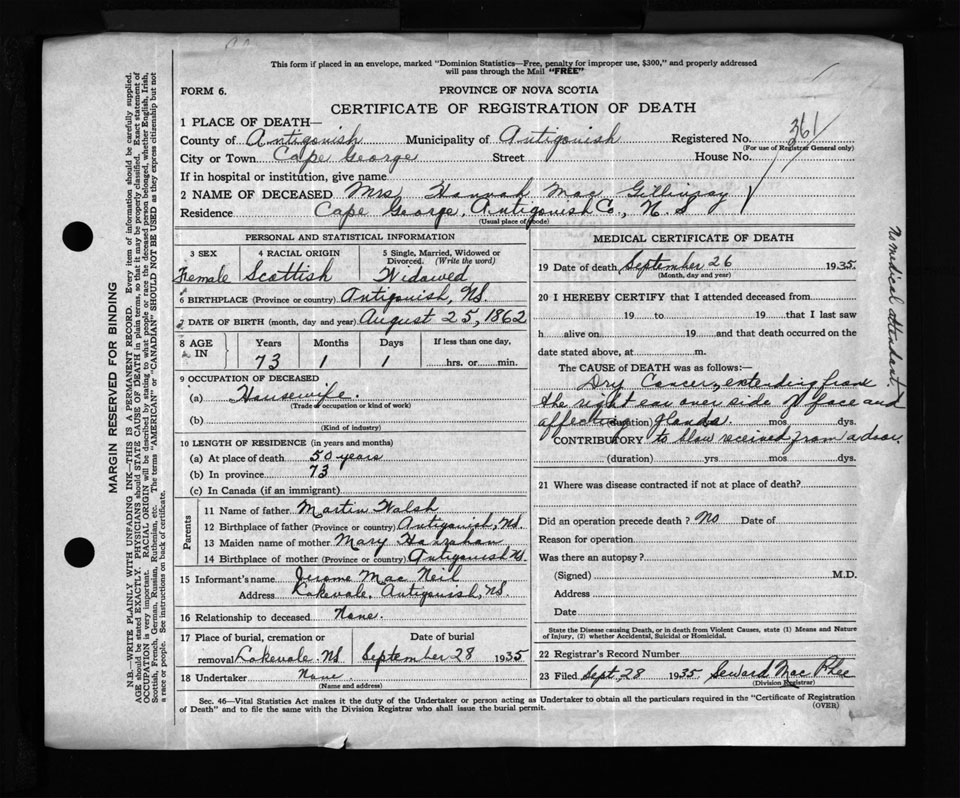 This form if placed in an envelope, marked "Dominion Statistics—Free, penalty for improper use, $300," and properly addressed
will pass through the Mail "FREE"
FORM 6.
PROVINCE OF NOVA SCOTIA
CERTIFICATE OF REGISTRATION OF DEATH
1 PLACE OF DEATH—
County of Antigonish Municipality of Antigonish Registered No. 361
(For use of Registrar General only)
City or Town Cape George Street House No.
If in hospital or institution, give name
2 NAME OF DECEASED Mrs Hannah Mac Gillivray
Residence Cape George, Antigonish Co., N. S
(Usual place of abode)
PERSONAL AND STATISTICAL INFORMATION
3 SEX 4 RACIAL ORIGIN 5 Single, Married, Widowed or
Divorced. (Write the word)
Female Scottish Widowed
6 BIRTHPLACE (Province or country) Antigonish, NS.
7 DATE OF BIRTH (month, day and year) August 25, 1862
8 AGE IN Years Months Days If less than one day,
73 1 1 hrs. or min.
9 OCCUPATION OF DECEASED
(a) Housewife.
(Trade, occupation or kind of work)
(b)
(Kind of industry)
10 LENGTH OF RESIDENCE (in years and months)
(a) At place of death 50 years
(b) In province 73
(c) In Canada (if an immigrant)
Parents
11 Name of father Martin Walsh
12 Birthplace of father (Province or country) Antigonish, NS.
13 Maiden name of mother Mary Hanrahan
14 Birthplace of mother (Province or country) Antigonish NS.
15 Informant's name Jerome Mac Neil
Address Lakevale, Antigonish, NS.
16 Relationship to deceased None.
17 Place of burial, cremation or Date of burial
removal Lakevale. NS September 28 1935
18 Undertaker None.
(Name and address)
MEDICAL CERTIFICATE OF DEATH
19 Date of death September 26 1935.
(Month, day and year)
20 I HEREBY CERTIFY that I attended deceased from
19 to 19 that I last saw
h alive on 19 and that death occurred on the
date stated above, at m.
The CAUSE of DEATH was as follows:—
Dry Cancer, extending from
the right ear over side of face and
affecting glands.
(duration) yrs. mos dys.
CONTRIBUTORY to blow received from a door.
(duration) yrs. mos dys.
21 Where was disease contracted if not at place of death?
Did an operation precede death? No Date of
Reason for operation
Was there an autopsy?
(Signed) M.D.
Address
Date
State the Disease causing Death, or in death from Violent Causes, state (1) Means and Nature
of Injury, (2) whether Accidental, Suicidal or Homicidal.
22 Registrar's Record Number
23 Filed Sept. 28 1935 Seward Mac Phee
(Division Registrar)
Sec. 46—Vital Statistics Act makes it the duty of the Undertaker or person acting as Undertaker to obtain all the particulars required in the "Certificate of Registration
of Death" and to file the same with the Division Registrar who shall issue the burial permit.
(OVER)
No medical attendant
MARGIN RESERVED FOR BINDING
N.B.—WRITE PLAINLY WITH UNFADING INK—THIS IS A PERMANENT RECORD. Every item of information should be carefully supplied.
AGE should be stated EXACTLY. PHYSICIANS should STATE CAUSE OF DEATH in plain terms, so that it may be properly classified. Exact statement of
OCCUPATION is very important. RACIAL ORIGIN will be described by stating to what people or race the deceased person belonged, whether English, Irish,
Scottish, French, German, Russian, Ruthenian, etc. The terms "AMERICAN" or "CANADIAN" SHOULD NOT BE USED as they express citizenship but not
a race or people. See instructions on back of certificate.